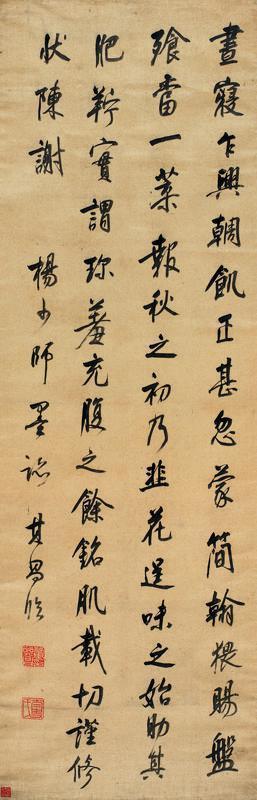 晝寢乍興朝飢正甚忽蒙簡翰猥賜盤
飱當一葉報秋之初乃韭花逞味之始助其
肥羜實謂珍羞充腹之餘銘肌載切謹修
狀陳謝
楊少師墨跡 其昌臨